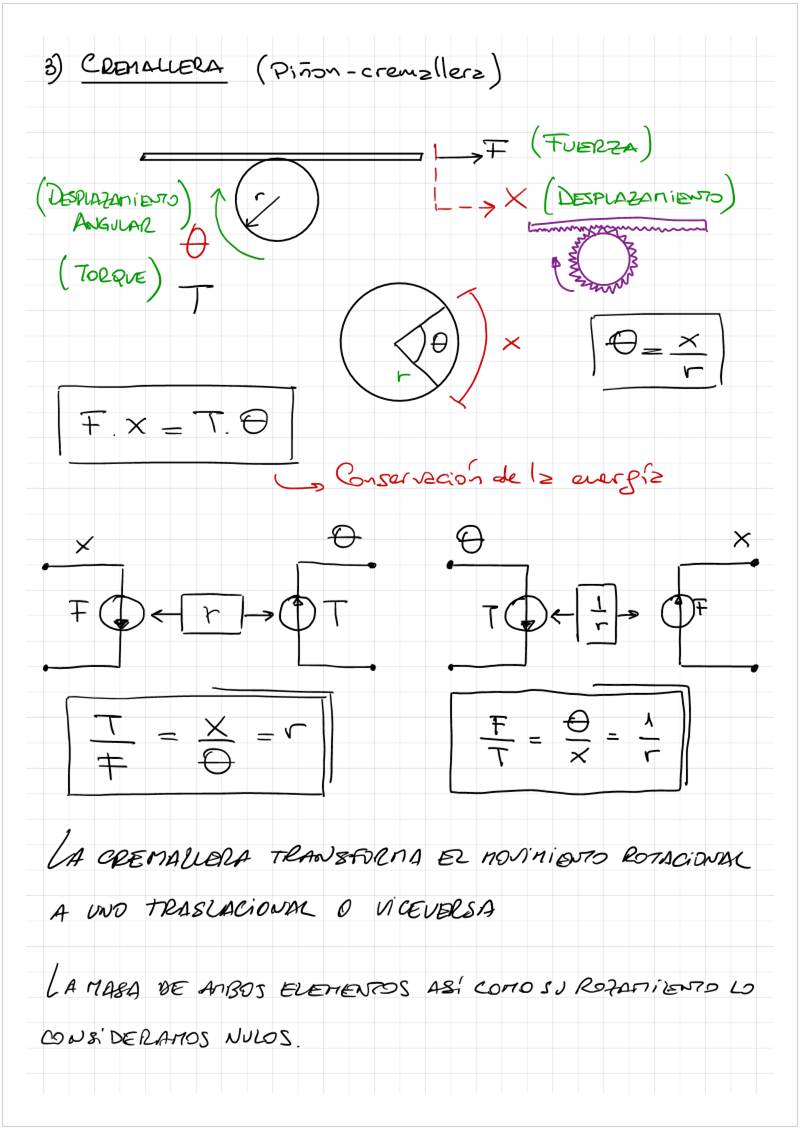 3) CREMALLERA (Piñon-cremallera)
F (FUERZA)
r
(DESPLAZAMIENTO ANGULAR) θ
X (DESPLAZAMIENTO)
(TORQUE) T
θ
r
x
θ = x/r
F . X = T . θ
Conservación de la energía
X
θ
θ
X
F
r
T
T
1/r
F
T/F = X/θ = r
F/T = θ/X = 1/r
LA CREMALLERA TRANSFORMA EL MOVIMIENTO ROTACIONAL
A UNO TRASLACIONAL O VICEVERSA
LA MASA DE AMBOS ELEMENTOS ASÍ COMO SU ROZAMIENTO LO
CONSIDERAMOS NULOS.